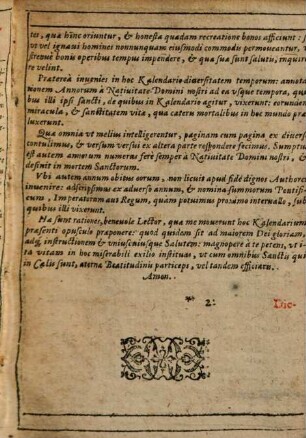 tes, qua hinc oriuntur, & honesta quadam recreatione bonos afficiunt:
vt vel ignaui homines nonnunquam eiusmodi commodis permoueantur,
strenuè bonis operibus tempus impendere, & qua sua sunt salutis, inquirere
velint.
Præterea inuenies in hoc Kalendario diuersitatem temporum: annota
tionem Annorum à Natiuitate Domini nostri ad ea vsque tempora, qui
bus illi ipsi sancti, de quibus in Kalendario agitur, vixerunt: eorundem
miracula, & sanctitatem vitæ, qua cæteris mortalibus in hoc mundo præ
luxerunt.
Qua omnia vt melius intelligerentur, paginam cum pagina ex aduerso
contulimus, & versum versui ex altera parte respondere fecimus. Sumptus
est autem annorum numerus ferè semper à Natiuitate Domini nostri, &
desinit in mortem Sanctorum.
Vbi autem annum obitus eorum, non licuit apud fide dignos Authores
inuenire: adscripsimus ex aduerso annum, & nomina summorum Pontifi-
cum, Imperatorum aut Regum, quàm potuimus proximo interuallo, sub
quibus illi vixerunt.
Hæ sunt rationes, beneuole Lector, quæ me mouerunt hoc Kalendarium
præsenti opusculo præponere: quod quidem sit ad maiorem Dei gloriam,
adq; instructionem & vniuscuiusque Salutem: magnopere à te petens, vt i-
ta vitam in hoc miserabili exilio instituas, vt cum omnibus Sanctis qui
in Cælo sunt, æternæ Beatitudinis particeps, vel tandem efficiare.
Amen.
2: Dic-